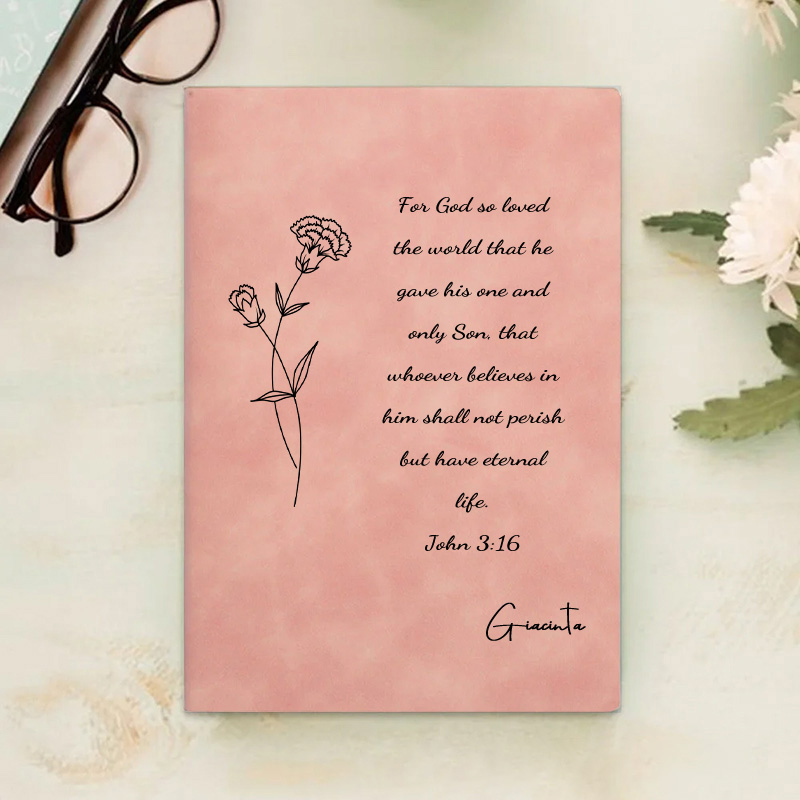 For God so loved
the world that he
gave his one and
only Son, that
whoever believes in
him shall not perish
but have eternal
life.
John 3:16
Giacinta